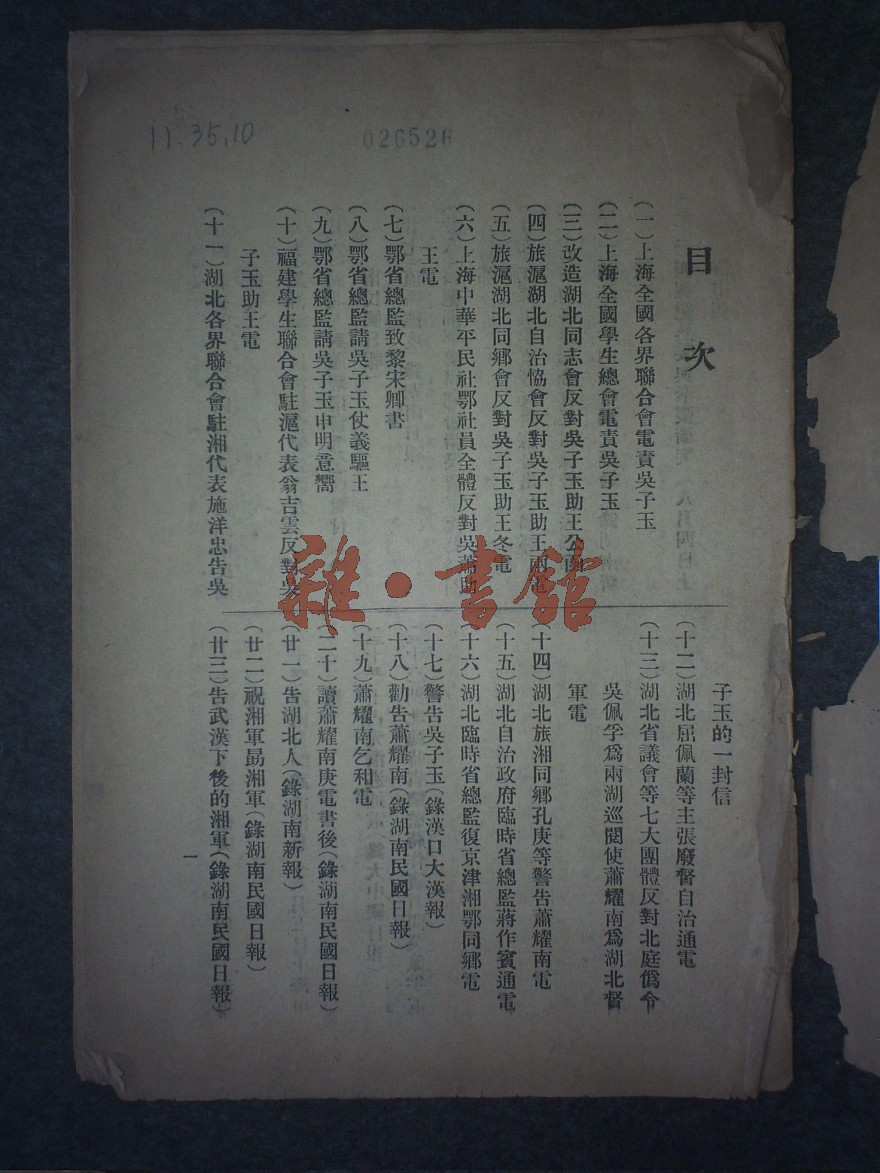 11.35,10
026526
目次
（一）上海全國各界聯合會電責吳子玉
（二）上海全國學生總會電責吳子玉
（三）改造湖北同志會反對吳子玉助王公函
（四）旅滬湖北自治協會反對吳子玉助王兩電
（五）旅滬湖北同鄉會反對吳子玉助王冬電
（六）上海中華平民社鄂社員全體反對吳蕭助
王電
（七）鄂省總監致黎宋卿書
（八）鄂省總監請吳子玉仗義驅王
（九）鄂省總監請吳子玉申明意嚮
（十）福建學生聯合會駐滬代表翁吉雲反對吳
子玉助王電
（十一）湖北各界聯合會駐湘代表施洋忠告吳
子玉的一封信
（十二）湖北屈佩蘭等主張廢督自治通電
（十三）湖北省議會等七大團體反對北庭僞令
吳佩孚爲兩湖巡閱使蕭耀南爲湖北督
軍電
（十四）湖北旅湘同鄉孔庚等警告蕭耀南電
（十五）湖北自治政府臨時省總監蔣作賓通電
（十六）湖北臨時省總監復京津湘鄂同鄉電
（十七）警告吳子玉（錄漢口大漢報）
（十八）勸告蕭耀南（錄湖南民國日報）
（十九）蕭耀南乞和電
（二十）讀蕭耀南庚電書後（錄湖南民國日報）
（廿一）告湖北人（錄湖南新報）
（廿二）祝湘軍勗湘軍（錄湖南民國日報）
（廿三）告武漢下後的湘軍（錄湖南民國日報）
一
雜·書館